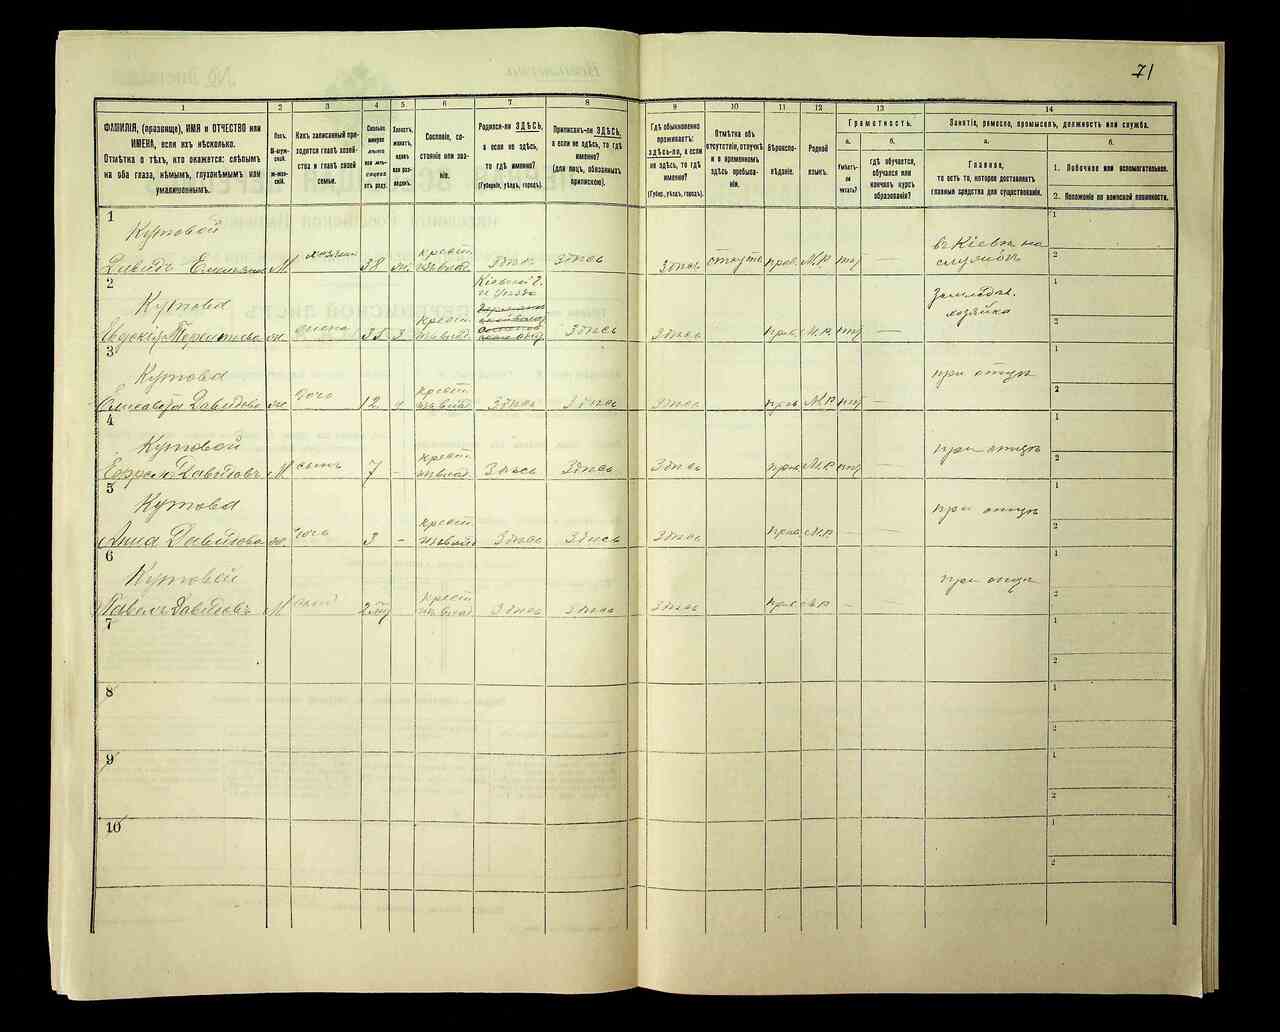 71
1
2
3
4
5
6
7
8
9
10
11
12
13
14
ФАМИЛІЯ, (прозвище), ИМЯ и ОТЧЕСТВО или
ИМЕНА, если ихъ нѣсколько.
Отмѣтка о тѣхъ, кто окажется: слѣпымъ
на оба глаза, нѣмымъ, глухонѣмымъ или
умалишеннымъ.
Полъ.
М-муж-
ской.
ж-жен-
скій.
Какъ записанный при-
ходится главѣ хозяй-
ства и главѣ своей
семьи.
Сколько
минуло
лѣтъ
или мѣ-
сяцевъ
отъ роду.
Холостъ,
женатъ,
вдовъ
или раз-
веденъ.
Сословіе, со-
стояніе или зва-
ніе.
Родился-ли ЗДѢСЬ,
а если не здѣсь,
то гдѣ именно?
(Губернія, уѣздъ, городъ).
Приписанъ-ли ЗДѢСЬ,
а если не здѣсь, то гдѣ
именно?
(для лицъ, обязанныхъ
припискою).
Гдѣ обыкновенно
проживаетъ:
здѣсь-ли, а если
не здѣсь, то гдѣ
именно?
(Губер., уѣздъ, городъ).
Отмѣтка объ
отсутствіи, отлучкѣ
и о временномъ
здѣсь пребыва-
ніи.
Вѣроиспо-
вѣданіе.
Родной
языкъ.
Грамотность.
а.
Умѣетъ-
ли
читать?
б.
гдѣ обучается,
обучался или
кончилъ курсъ
образованія?
Занятіе, ремесло, промыселъ, должность или служба.
а.
Главное,
то есть то, которое доставляетъ
главныя средства для существованія.
б.
1. Побочное или вспомогательное.
2. Положеніе по воинской повинности.
1
Кутовой
Давидъ М хозяинъ 38 ж. крест. Здѣсь Здѣсь Здѣсь прав. М.Р. въ Кіевѣ на
службѣ
1
2
2
Кутова
Евдокія Терентьева ж жена 35 З крест. Кіевской г.
и уѣзда
Здѣсь Здѣсь прав. М.Р. —
хозяйка
1
2
3
Кутова
Елисавета Давидова ж дочь 12 крест. Здѣсь Здѣсь Здѣсь прав. М.Р. —
при отцѣ
1
2
4
Кутовой
Ефремъ Давидовъ М сынъ 7 - крест. Здѣсь Здѣсь Здѣсь прав. М.Р. —
при отцѣ
1
2
5
Кутова
Анна Давидова ж. дочь 3 - крест. Здѣсь Здѣсь Здѣсь прав. М.Р. —
при отцѣ
1
2
6
Кутовой
Павелъ Давидовъ М сынъ крест. Здѣсь Здѣсь Здѣсь прав. М.Р. —
при отцѣ
1
2
7
1
2
8
1
2
9
1
2
10
1
2